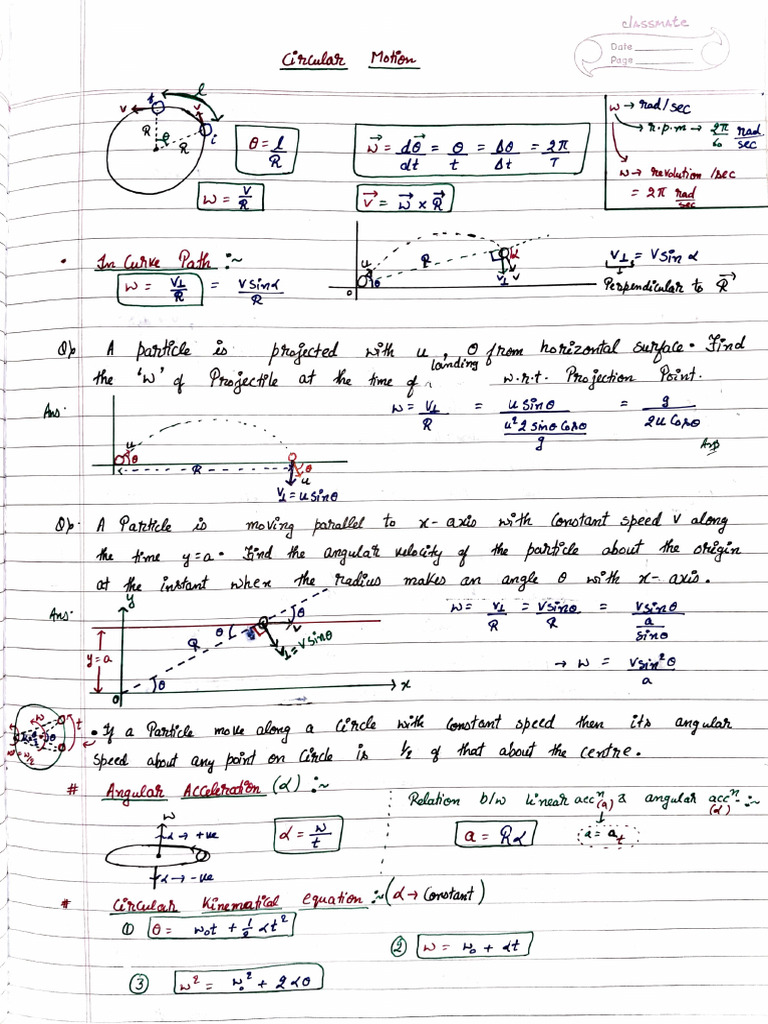 classmate
Date
Page
Circular Motion
θ = l/R
ω⃗ = dθ⃗/dt = θ/t = Δθ/Δt = 2π/T
ω → rad/sec
→ r.p.m → 2π/60 rad/sec
ω → revolution/sec
= 2π rad/sec
ω = v/R
v⃗ = ω⃗ × R⃗
• In Curve Path :~
ω = v⊥/R = v sinα/R
v⊥ = v sin α
Perpendicular to R⃗
Qⁿ A particle is projected with u, θ from horizontal surface. Find
the 'ω' of Projectile at the time of landing w.r.t. Projection Point.
Ans:
ω = v⊥/R = u sinθ / (u² 2 sinθ cosθ / g) = g / 2u cosθ
Ans
v⊥ = u sinθ
Qⁿ A Particle is moving parallel to x-axis with constant speed v along
the time y=a. Find the angular velocity of the particle about the origin
at the instant when the radius makes an angle θ with x-axis.
Ans:
ω = v⊥/R = v sinθ/R = v sinθ / (a / sinθ)
y=a
v⊥ = v sinθ
→ ω = v sin²θ / a
• If a Particle move along a circle with constant speed then its angular
speed about any point on circle is 1/2 of that about the centre.
# Angular Acceleration (α) :~
Relation b/w linear accⁿ (a) & angular accⁿ (α) :~
α → +ve
α → -ve
α = ω/t
a = Rα
a = a_t
# Circular Kinematical equation :~ (α → Constant)
① θ = ω₀t + 1/2 αt²
② ω = ω₀ + αt
③ ω² = ω₀² + 2αθ